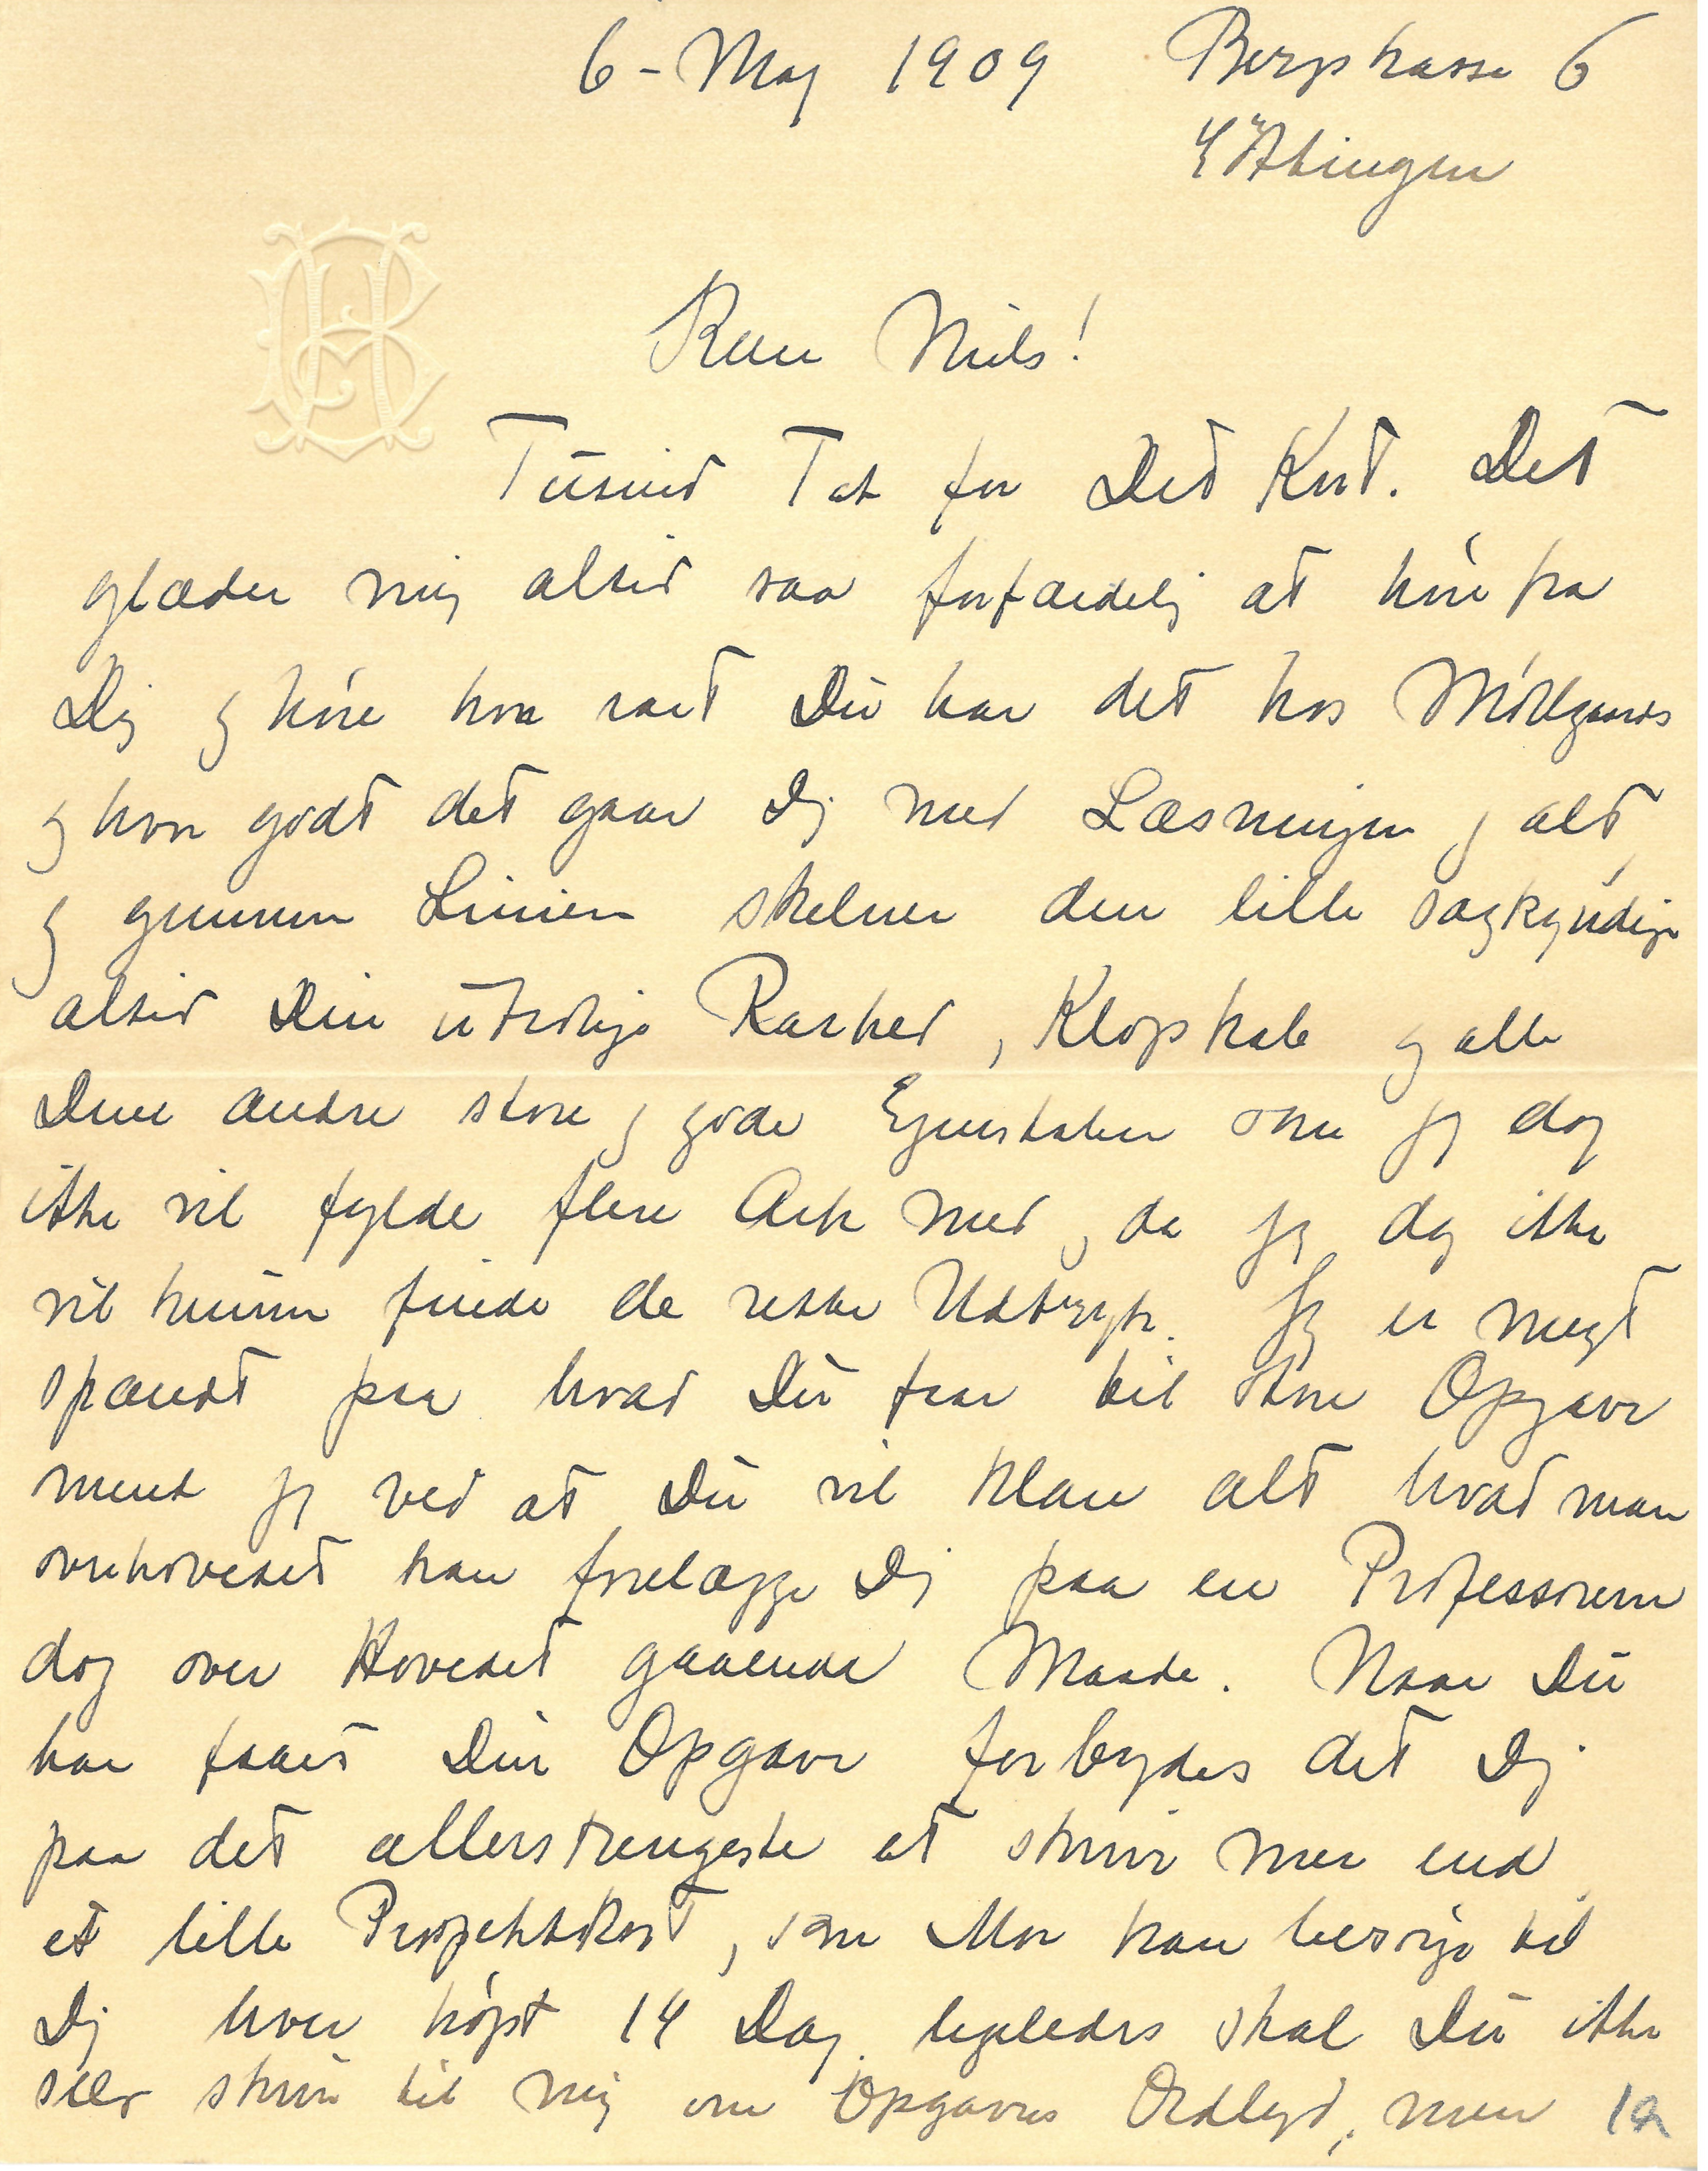 6 - Maj 1909 Bergstrasse 6
Göttingen
HB
Kære Niels!
Tusind Tak for Dit Kort. Det
glæder mig altid saa forfærdelig at høre fra
Dig og høre hvor rart Du har det hos Møllgaards
og hvor godt det gaar Dig med Læsningen og alt
og gennem Linien skelner den lille sagkyndige
altid Din utrolige Raskhed, Klogskab og alle
Dine andre store og gode Egenskaber som jeg dog
ikke vil fylde flere Ark med, da jeg dog ikke
vil kunne finde de rette Udtryk. Jeg er meget
spændt paa hvad Du faar til store Opgave
ment jeg ved at Du vil klare alt hvad man
overhovedet kan forelægge Dig paa en Professoren
dog over Hovedet gaaende Maade. Naar Du
har faaet Din Opgave forbydes det Dig
paa det allerstrengeste at skrive mer end
et lille Prospektkort, som Mor kan besørge til
Dig hver højst 14 Dag. ligeledes skal Du ikke
selv skrive til mig om Opgavens Ordlyd, men 1a